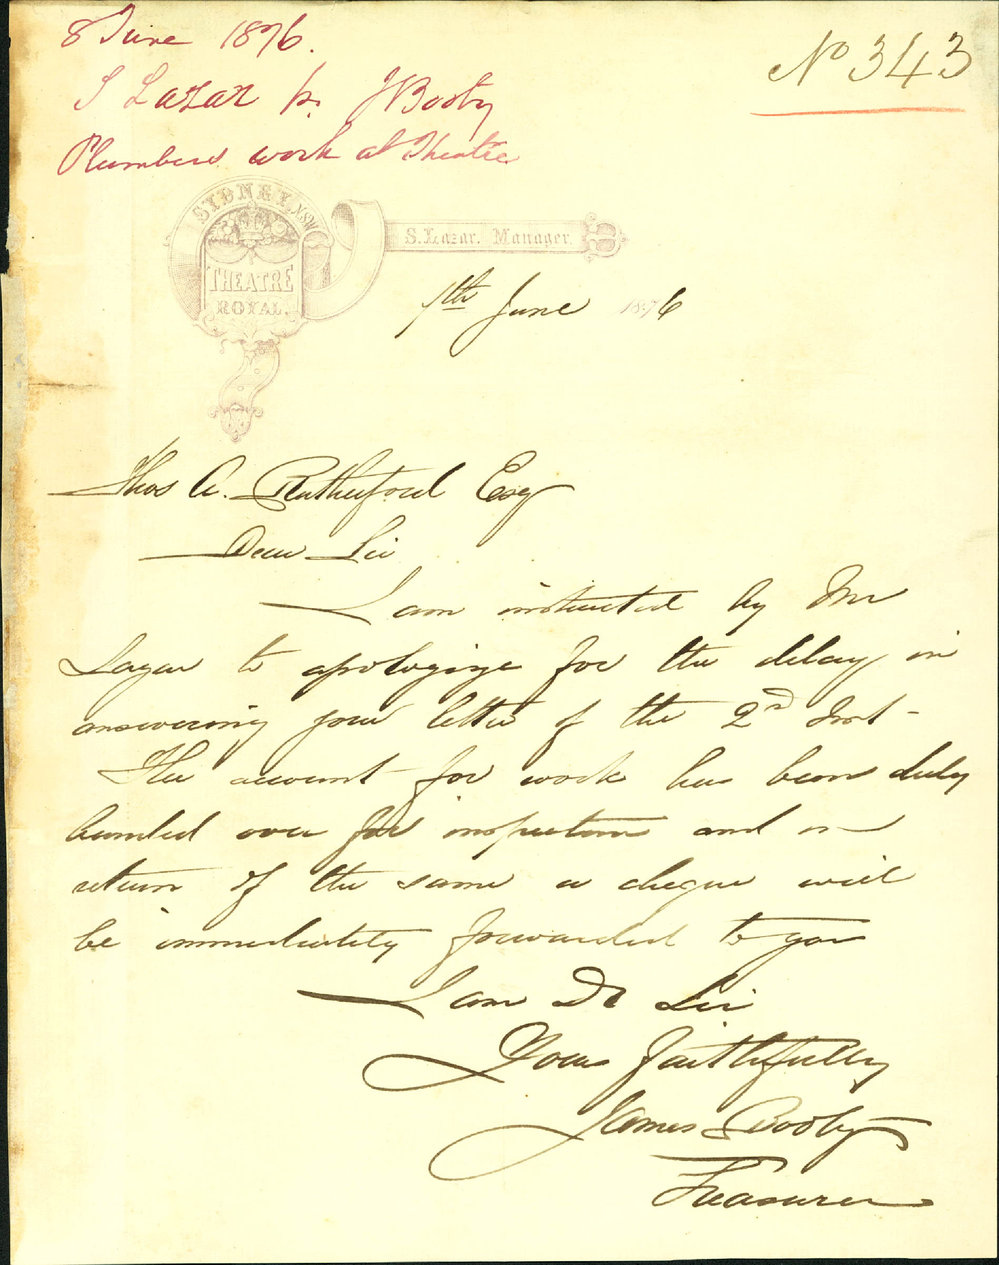 8 June 1876.
No 343
S Lazar pr. J Booty
Plumbers work at Theatre
SYDNEY, NSW
THEATRE
ROYAL.
S. Lazar. Manager.
7th June 1876
Thos A. Rutherford Esq
Dear Sir
I am instructed by Mr
Lazar to apologize for the delay in
answering your letter of the 2nd Inst -
The account for work has been duly
handed over for inspection and on
return of the same a cheque will
be immediately forwarded to you
I am Dr Sir
Yours faithfully
James Booty
Treasurer